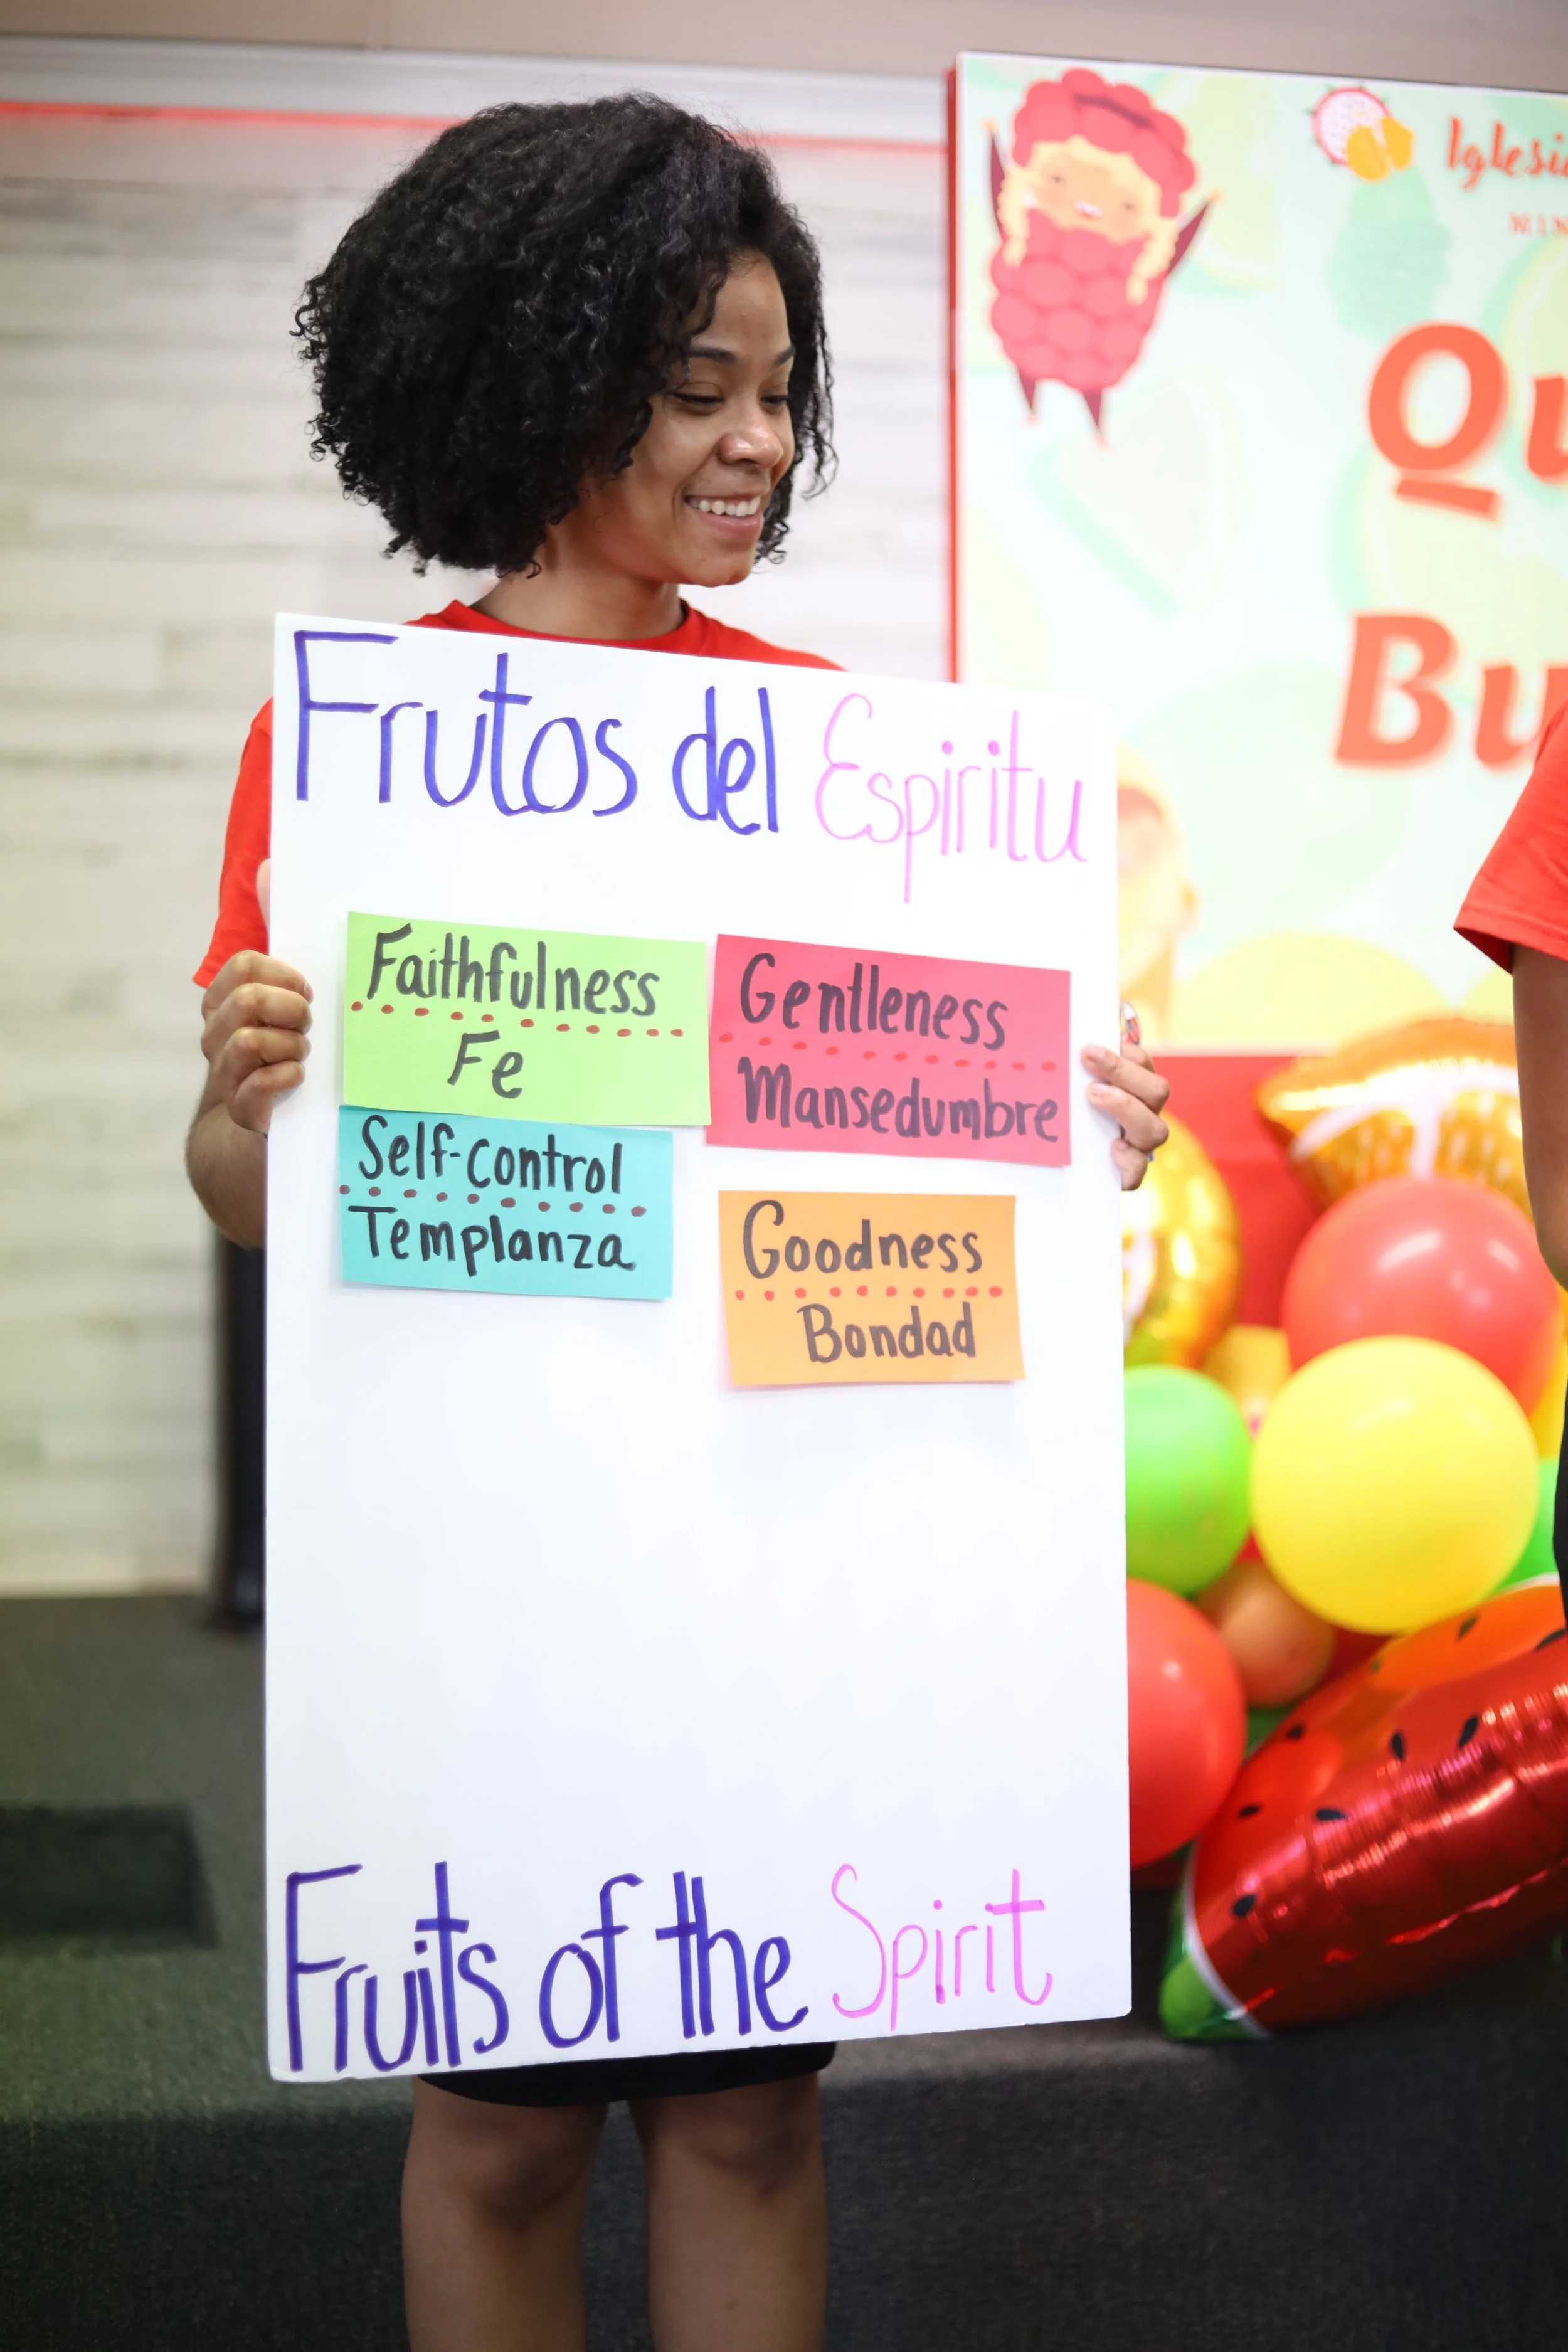 Iglesia
Frutos del Espiritu
Faithfulness
Fe
Gentleness
Mansedumbre
Self-control
Templanza
Goodness
Bondad
Fruits of the Spirit